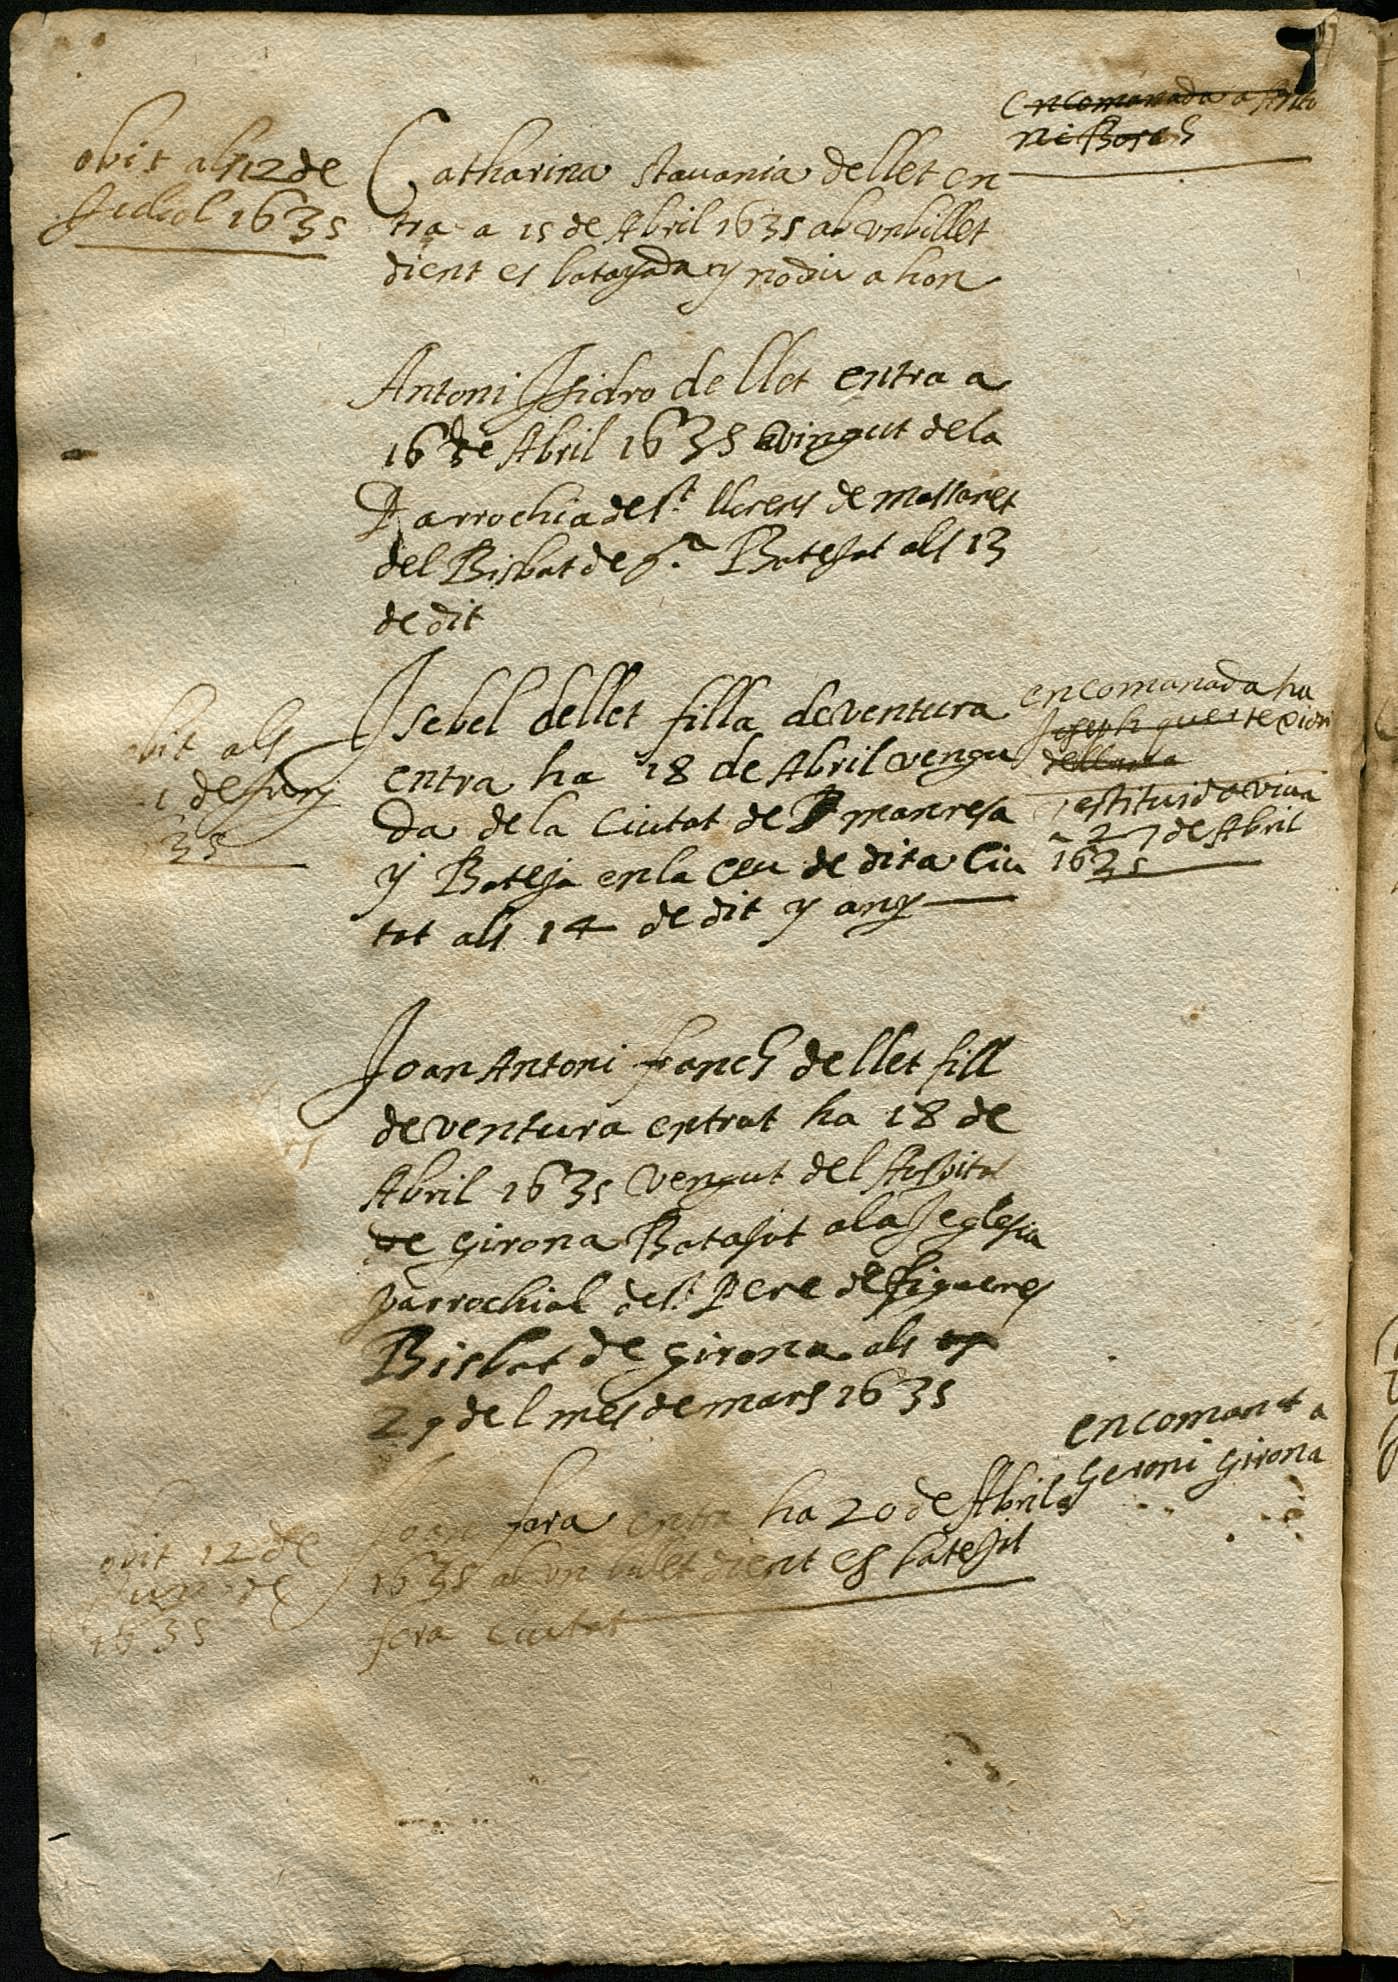 encomanada a Anto
ni Bosch
obit als 12 de
Juliol 1635
Catharina stauania de llet en
tra a 15 de Abril 1635 ab vn billet
dient es batajada y no diu a hon
Antoni Isidro de llet entra a
16 de Abril 1635 vingut de la
Parrochia de st. llorens de massanet
del Bisbat de ga. Batejat als 13
de dit
obit als
1 de Juny
35
Isebel de llet filla de ventura
entra ha 18 de Abril vengu
da de la Ciutat de manresa
y Bateja en la Ceu de dita Ciu
tat als 14 de dit y any
encomanada ha
Joseph
restituida viua
a 27 de Abril
1635
Joan Antoni franch de llet fill
de ventura entrat ha 18 de
Abril 1635 vengut del Aspital
de Girona Batajat a la Jeglesia
parrochial de st. Pere de figueres
Bisbat de Girona als
29 del mes de mars 1635
encomanat a
Geroni Girona
obit 12 de
Juny de
1635
Joan fora entra ha 20 de Abril
1635 ab vn bilet dient es batejat
fora Ciutat